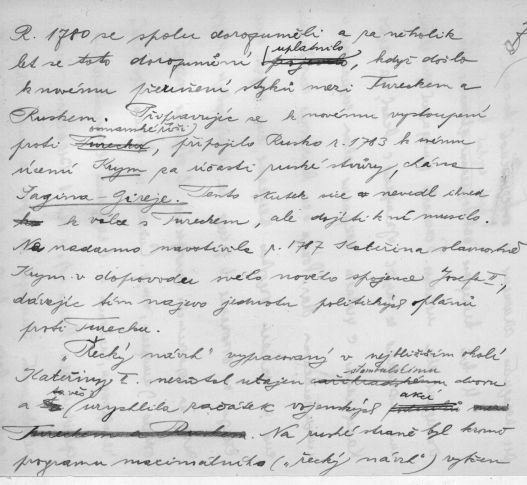 R. 1780 se spolu dorozuměli a za několik
let se toto dorozumění uplatnilo, když došlo
k novému přerušení styků mezi Tureckem a
Ruskem. Připravujíc se k novému vystoupení
proti osmanské říši, připojilo Rusko r. 1783 k svému
území Krym za účasti ruské stvůry, chána
Šagina-Gireje. Tento skutek sice nevedl ihned
k válce s Tureckem, ale dojíti k ní musilo.
Ne nadarmo navštívila r. 1787 Kateřina slavnostně
Krym v doprovodu svého nového spojence Josefa II.,
dávajíc tím najevo jednotu politických plánů
proti Turecku.
„Řecký návrh" vypracovaný v nejbližším okolí
Kateřiny II. nezůstal utajen stambulskému dvoru
a urychlila začátek vojenských akcí
. Na ruské straně byl kromě
programu maximálního („řecký návrh") vytčen